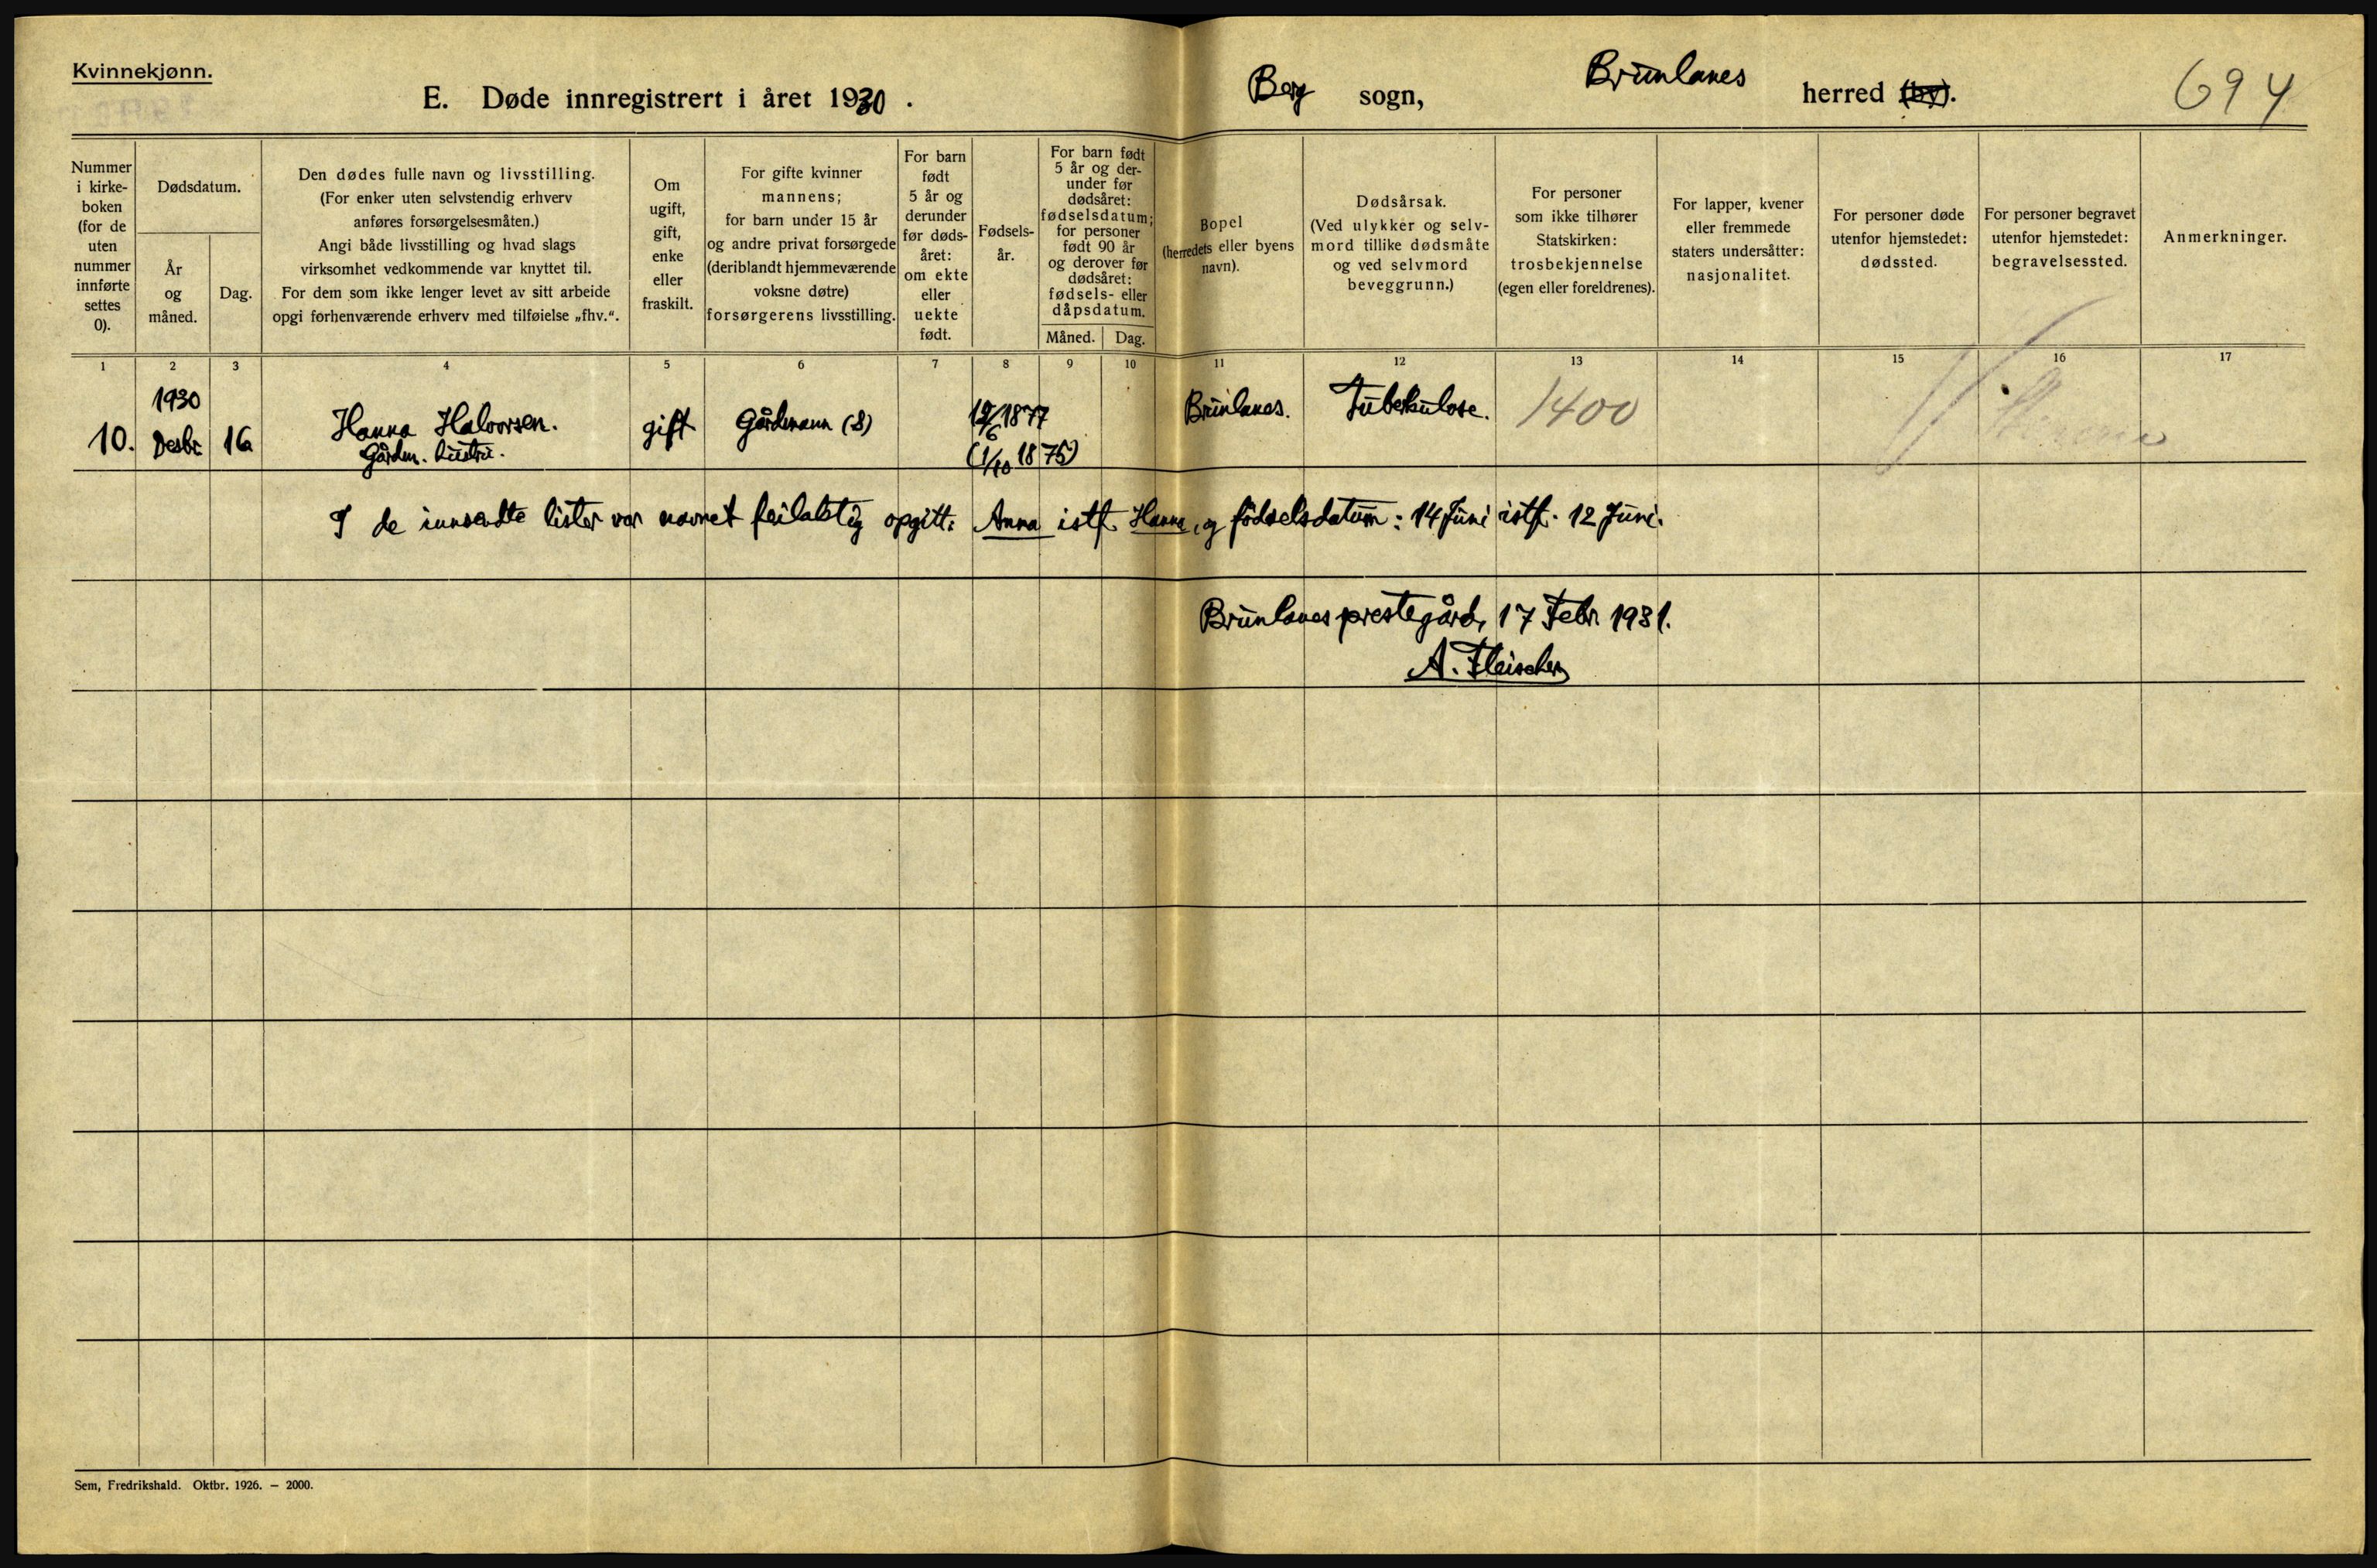 Kvinnekjønn.
E. Døde innregistrert i året 1930.
Berg sogn, Brunlanes herred (by).
694
Nummer
i kirke-
boken
(for de
uten
nummer
innførte
settes
0).
Dødsdatum.
År
og
måned.
Dag.
Den dødes fulle navn og livsstilling.
(For enker uten selvstendig erhverv
anføres forsørgelsesmåten.)
Angi både livsstilling og hvad slags
virksomhet vedkommende var knyttet til.
For dem som ikke lenger levet av sitt arbeide
opgi førhenværende erhverv med tilføielse „fhv.“.
Om
ugift,
gift,
enke
eller
fraskilt.
For gifte kvinner
mannens;
for barn under 15 år
og andre privat forsørgede
(deriblandt hjemmeværende
voksne døtre)
forsørgerens livsstilling.
For barn
født
5 år og
derunder
før døds-
året:
om ekte
eller
uekte
født.
Fødsels-
år.
For barn født
5 år og der-
under før
dødsåret:
fødselsdatum;
for personer
født 90 år
og derover før
dødsåret:
fødsels- eller
dåpsdatum.
Måned. Dag.
Bopel
(herredets eller byens
navn).
Dødsårsak.
(Ved ulykker og selv-
mord tillike dødsmåte
og ved selvmord
beveggrunn.)
For personer
som ikke tilhører
Statskirken:
trosbekjennelse
(egen eller foreldrenes).
For lapper, kvener
eller fremmede
staters undersåtter:
nasjonalitet.
For personer døde
utenfor hjemstedet:
dødssted.
For personer begravet
utenfor hjemstedet:
begravelsessted.
Anmerkninger.
1 2 3 4 5 6 7 8 9 10 11 12 13 14 15 16 17
1930
10. Desbr 16 Hanna Halvorsen. gift Gårdmann (S) 12/6 1877 Brunlanes. Tuberkulose. 1400
Gårdm. hustru. (1/10 1875)
I de innsendte lister var navnet feilaktig opgitt: Anna istf. Hanna, og födselsdatum: 14 Juni istf. 12 Juni.
Brunlanes prestegård, 17 Febr. 1931.
A. Fleischer
Sem, Fredrikshald. Oktbr. 1926. — 2000.